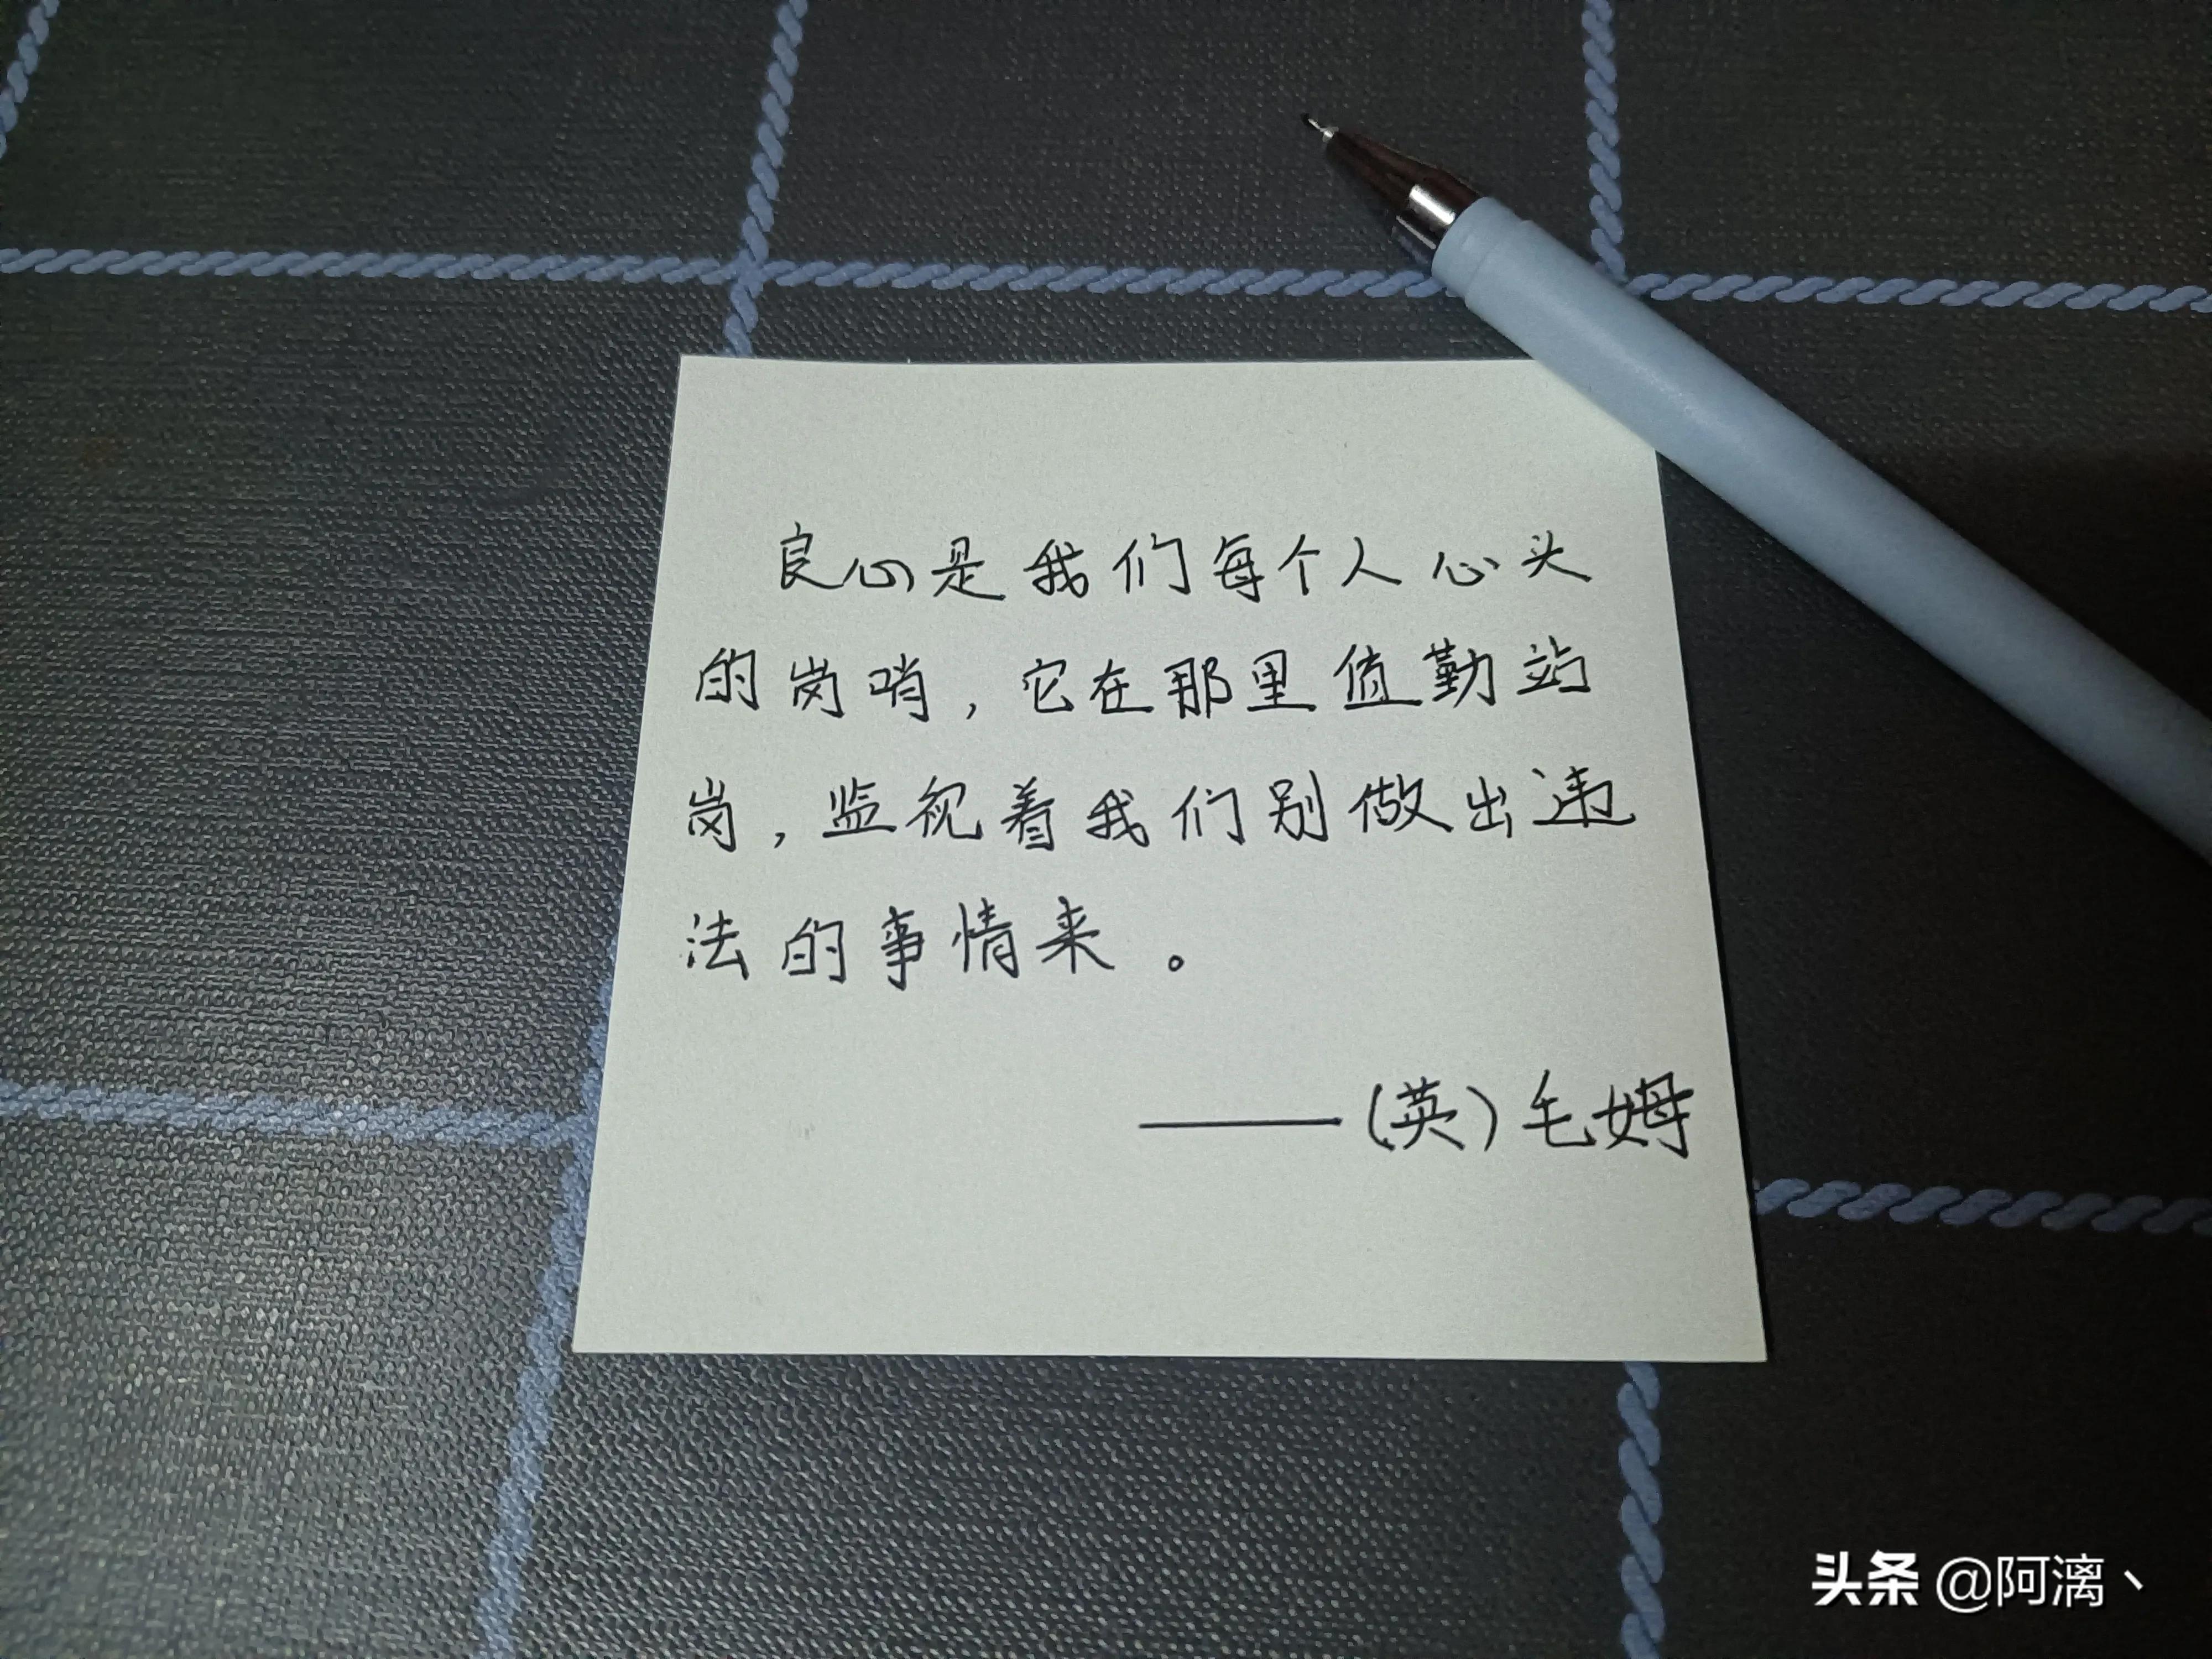 良心是我们每个人心头
的岗哨，它在那里值勤站
岗，监视着我们别做出违
法的事情来。
——（英）毛姆
头条 @阿漓丶